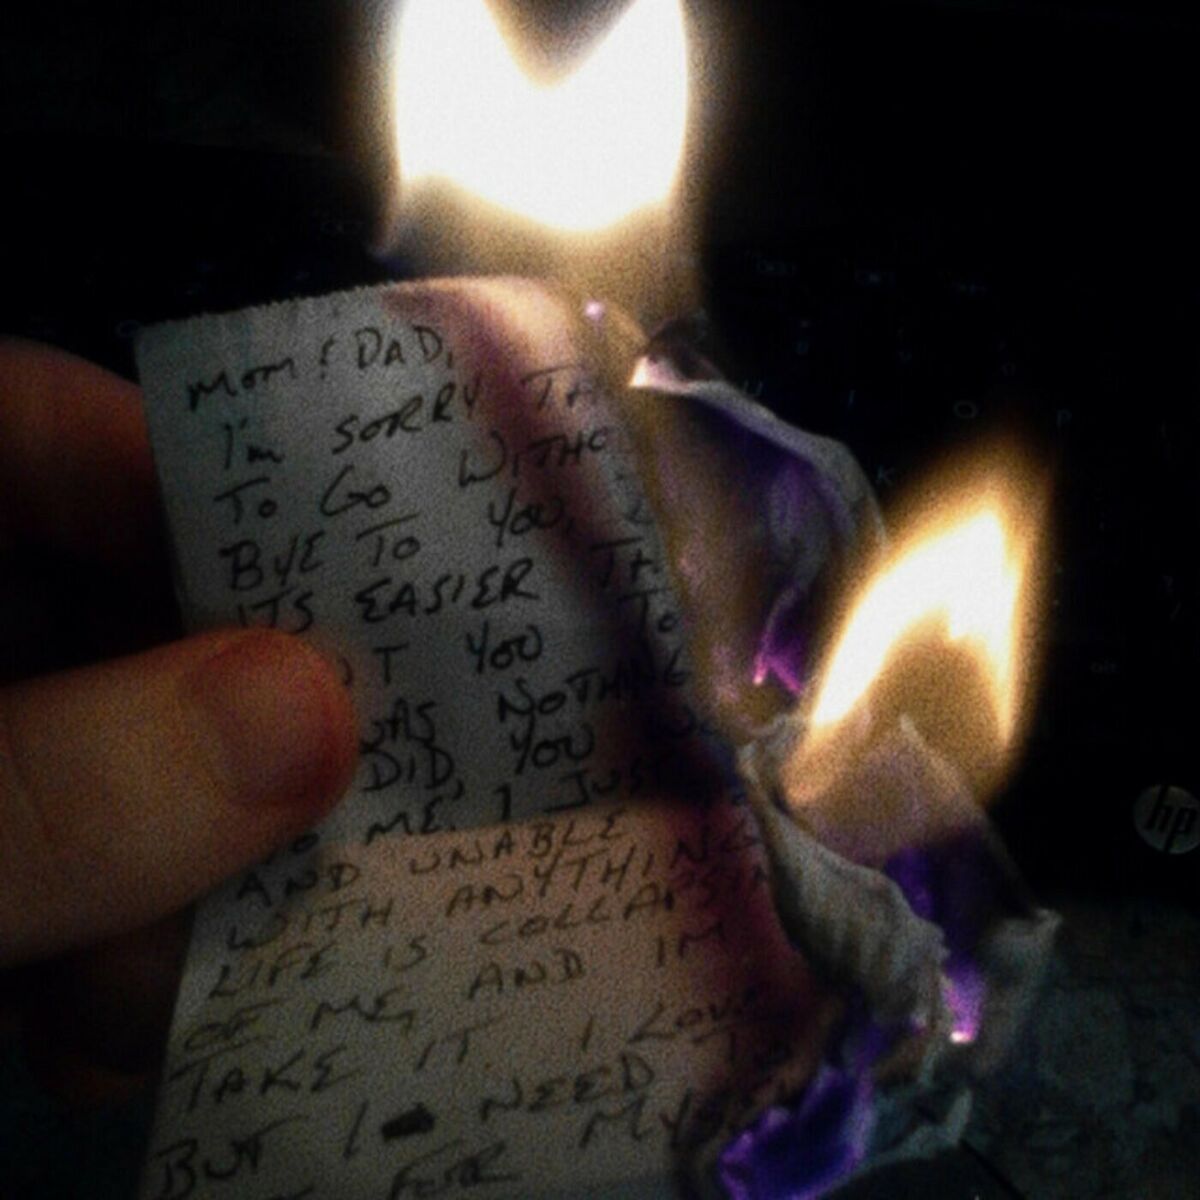 MOM & DAD,
I'm SORRY
TO GO WITHO
BYE TO YOU,
ITS EASIER
YOU TO
WAS NOTHING
DID, YOU
TO ME, I JUST
AND UNABLE
WITH ANYTHING
LIFE IS COLLAPSIN
OF ME, AND IM
TAKE IT. I LOVE
BUT I NEED TO
FOR MYSELF
hp